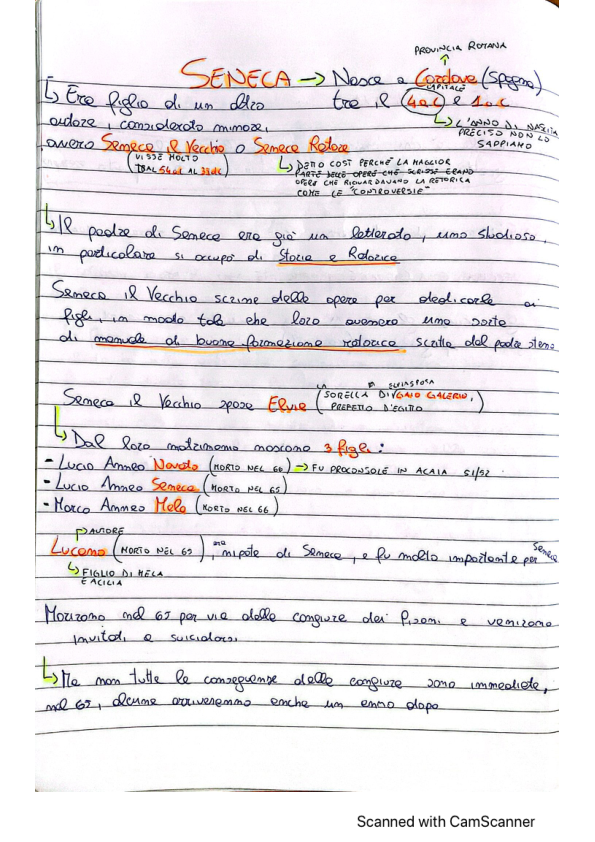 PROVINCIA ROMANA
SENECA → Nasce a Cordova (Spagna)
CAPITALE
↳ Era figlio di un altro tra il 4 a.C e 1 a.C
autore, considerato minore, ↳ L'ANNO DI NASCITA
PRECISO NON LO
SAPPIAMO
ovvero Seneca il Vecchio o Seneca Retore
(VISSE MOLTO
DAL 54 a.C AL 39 d.C)
↳ DETTO COSÌ PERCHÈ LA MAGGIOR
PARTE DELLE OPERE CHE SCRISSE ERANO
OPERE CHE RIGUARDAVANO LA RETORICA
COME LE "CONTROVERSIE"
↳ Il padre di Seneca era già un letterato, uno studioso,
in particolare si occupò di Storia e Retorica
Seneca il Vecchio scrisse delle opere per dedicarle ai
figli, in modo tale che loro avessero una sorta
di manuale di buona formazione retorica scritta dal padre stesso
Seneca il Vecchio sposa Elvia (SORELLA DI GAIO GALERIO,
PREFETTO D'EGITTO)
↳ Dal loro matrimonio nascono 3 figli:
- Lucio Anneo Novato (MORTO NEL 66) → FU PROCONSOLE IN ACAIA 51/52
- Lucio Anneo Seneca (MORTO NEL 65)
- Marco Anneo Mela (MORTO NEL 66)
AUTORE
Lucano (MORTO NEL 65), era nipote di Seneca, e fu molto importante per Seneca
↳ FIGLIO DI MELA
E ACILIA
Morirono nel 65 per via della congiura dei Pisoni e vennero
invitati a suicidarsi
↳ Ma non tutte le conseguenze della congiura sono immediate,
nel 65, alcune arriveranno anche un anno dopo
Scanned with CamScanner